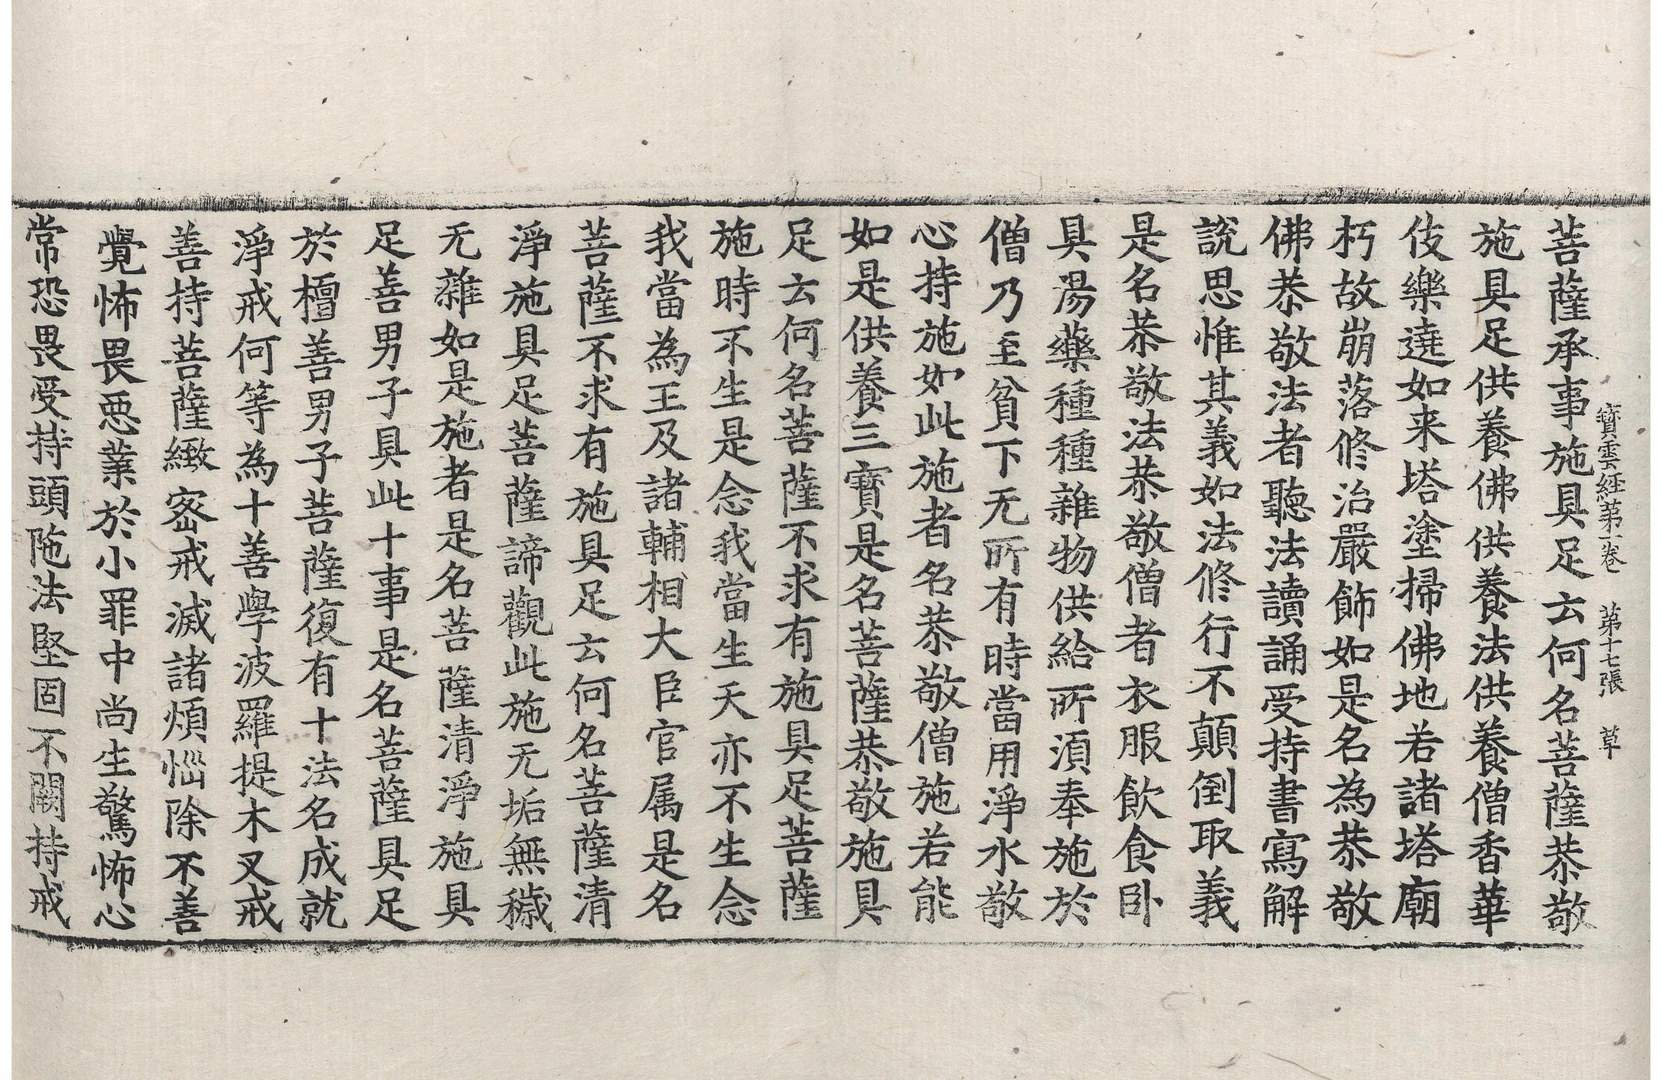 寶雲経苐一卷　苐十七張　草
菩薩承事施具足云何名菩薩恭敬
施具足供養佛供養法供養僧香華
伎樂遶如来塔塗掃佛地若諸塔廟
朽故崩落修治嚴飾如是名為恭敬
佛恭敬法者聽法讀誦受持書寫解
說思惟其義如法修行不顛倒取義
是名恭敬法恭敬僧者衣服飲食卧
具湯藥種種雜物供給所湏奉施於
僧乃至貧下无所有時當用淨水敬
心持施如此施者名恭敬僧施若能
如是供養三寶是名菩薩恭敬施具
足云何名菩薩不求有施具足菩薩
施時不生是念我當生天亦不生念
我當為王及諸輔相大臣官属是名
菩薩不求有施具足云何名菩薩清
淨施具足菩薩諦觀此施无垢無穢
无雜如是施者是名菩薩清淨施具
足善男子具此十事是名菩薩具足
於檀善男子菩薩復有十法名成就
淨戒何等為十善學波羅提木叉戒
善持菩薩緻宻戒滅諸煩惱除不善
覺怖畏惡業於小罪中尚生驚怖心
常恐畏受持頭陁法堅固不闕持戒